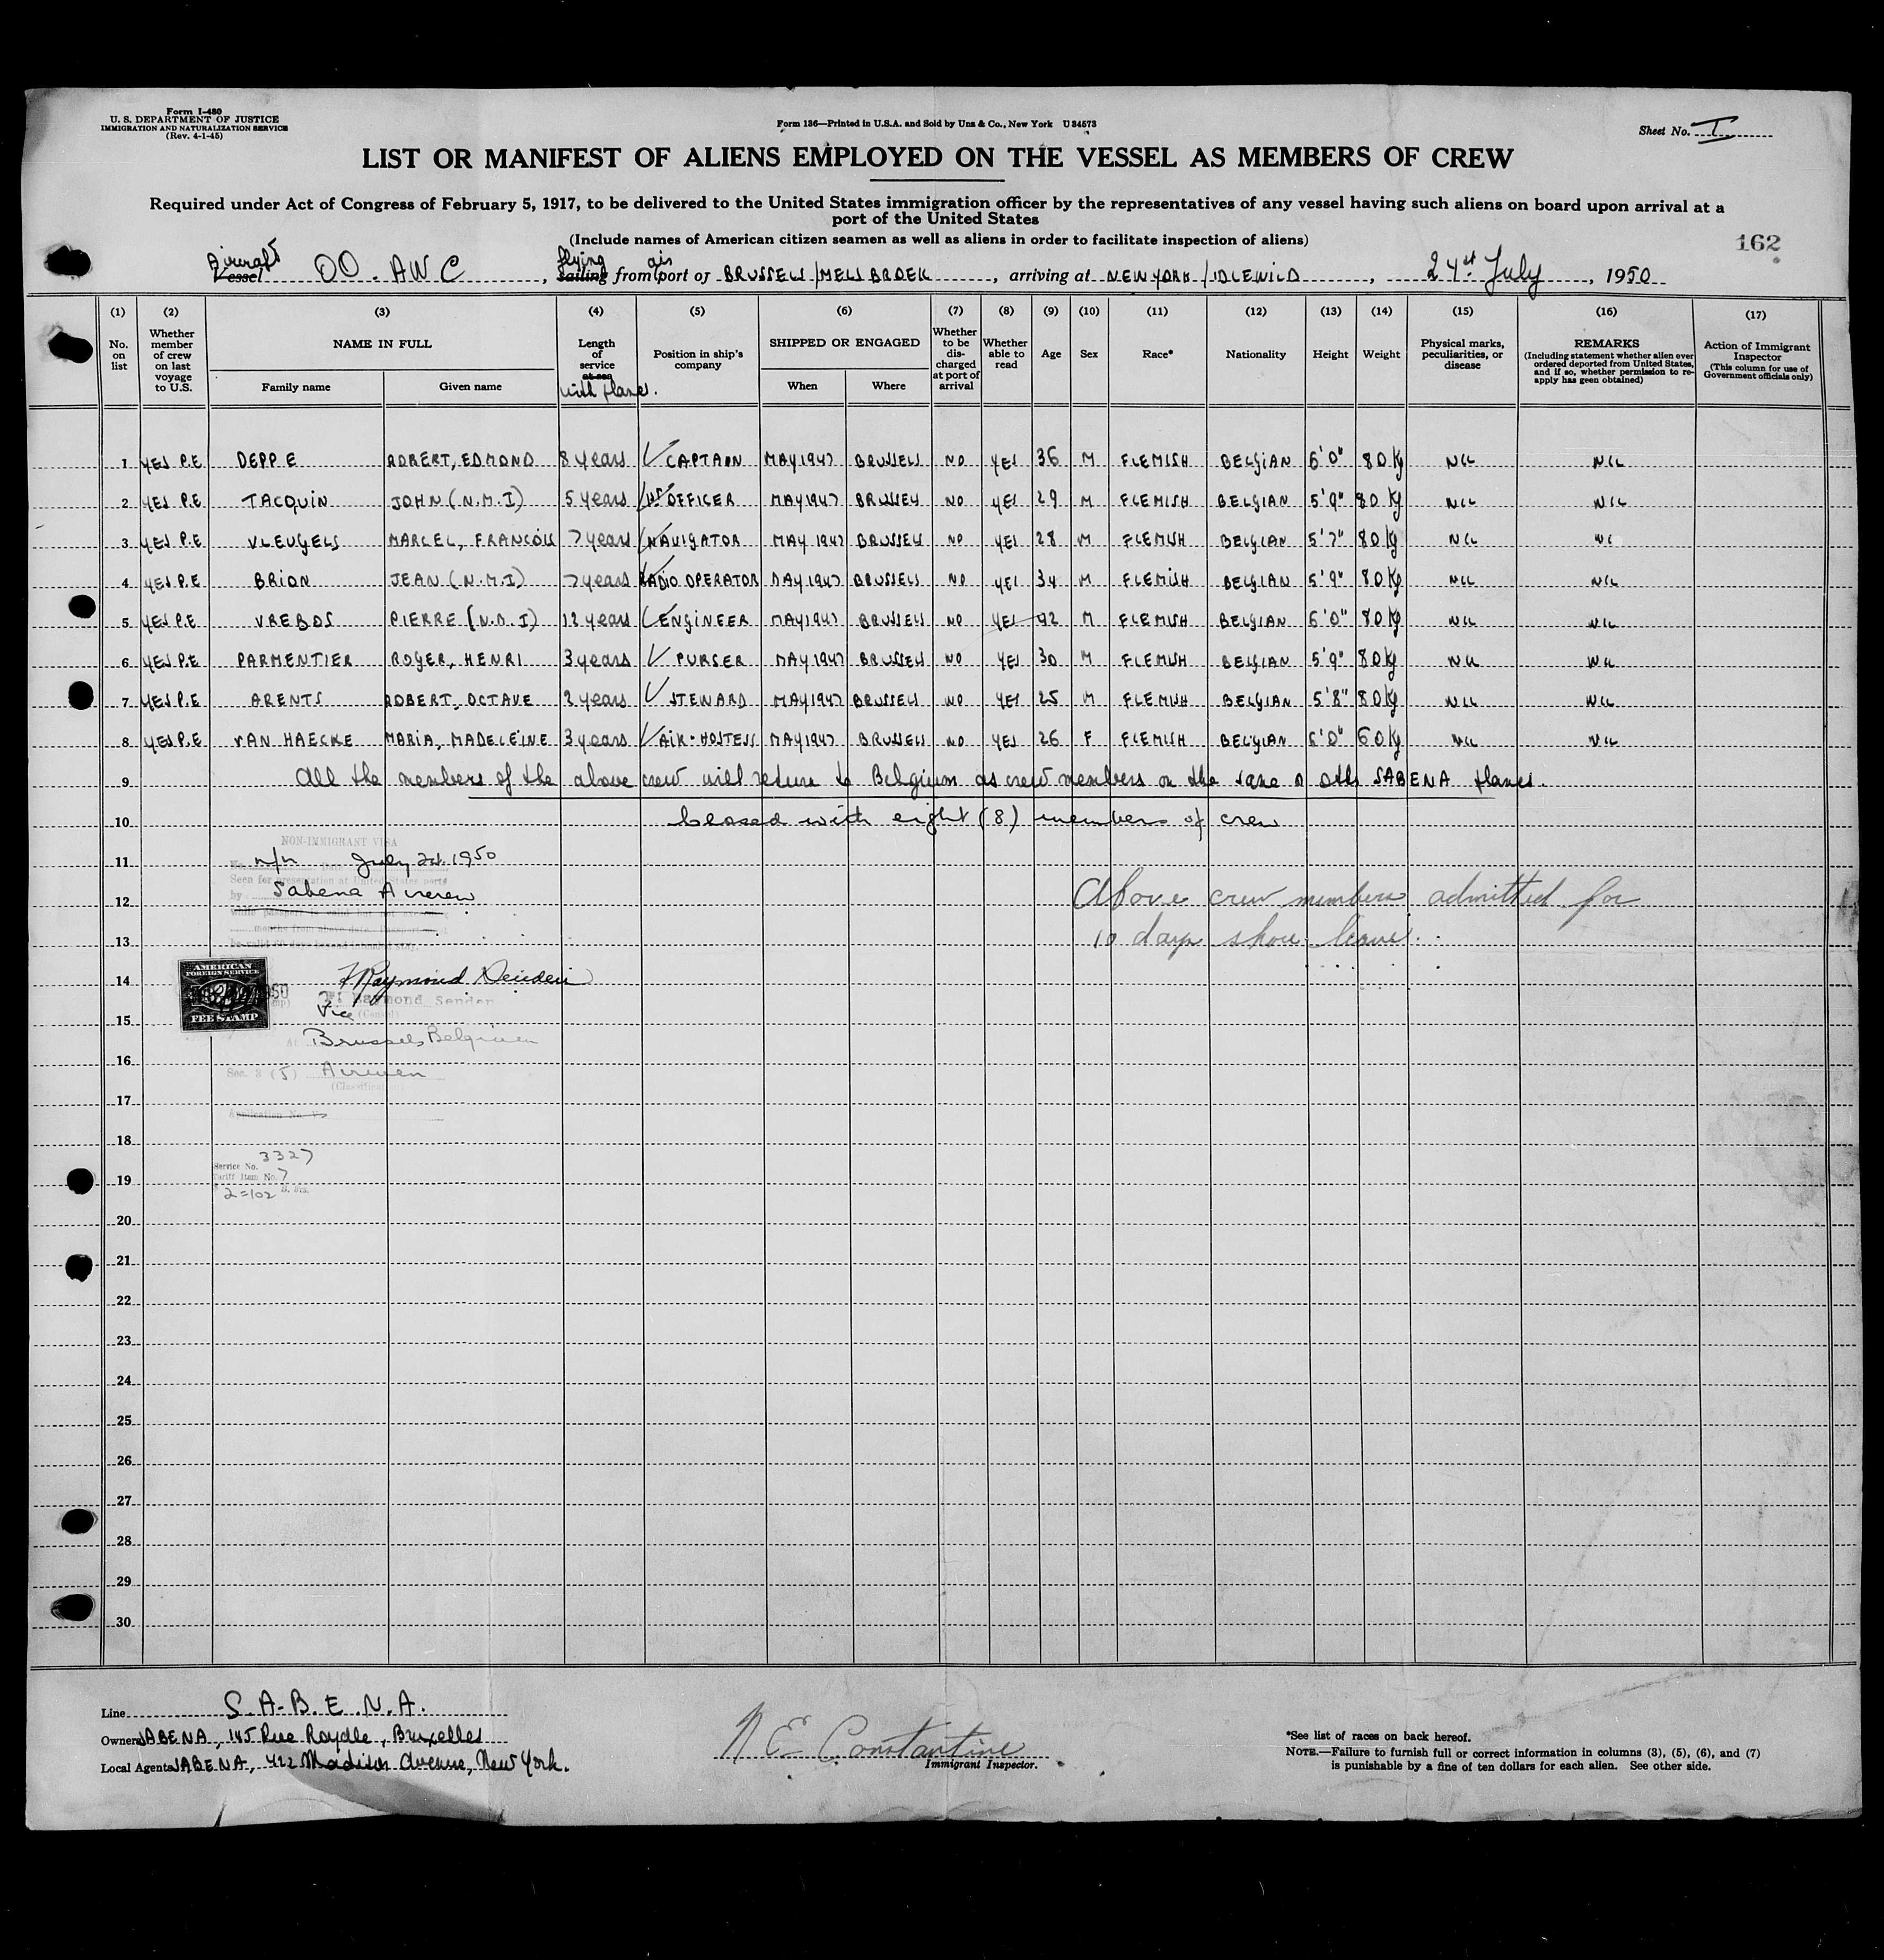 Form I-480
U. S. DEPARTMENT OF JUSTICE
IMMIGRATION AND NATURALIZATION SERVICE
(Rev. 4-1-45)
Form 136—Printed in U.S.A. and Sold by Unz & Co., New York U 34573
Sheet No. I
LIST OR MANIFEST OF ALIENS EMPLOYED ON THE VESSEL AS MEMBERS OF CREW
Required under Act of Congress of February 5, 1917, to be delivered to the United States immigration officer by the representatives of any vessel having such aliens on board upon arrival at a
port of the United States
(Include names of American citizen seamen as well as aliens in order to facilitate inspection of aliens)
162
Aircraft flying air
Vessel OO-AWC, sailing from port of BRUSSELS/MELSBROEK, arriving at NEW YORK/IDLEWILD, 24st July, 1950
(1) (2) (3) (4) (5) (6) (7) (8) (9) (10) (11) (12) (13) (14) (15) (16) (17)
No. on list
Whether member of crew on last voyage to U.S.
NAME IN FULL
Family name Given name
Length of service at sea with planes.
Position in ship's company
SHIPPED OR ENGAGED
When Where
Whether to be discharged at port of arrival
Whether able to read
Age
Sex
Race*
Nationality
Height
Weight
Physical marks, peculiarities, or disease
REMARKS
(Including statement whether alien ever ordered deported from United States, and if so, whether permission to re-apply has geen obtained)
Action of Immigrant Inspector
(This column for use of Government officials only)
1 YES P.E DEPPE ROBERT, EDMOND 8 years CAPTAIN MAY 1947 BRUSSELS NO YES 36 M FLEMISH BELGIAN 6'0" 80 Kg NIL NIL
2 YES P.E TACQUIN JOHN (N.M.I) 5 years 1st OFFICER MAY 1947 BRUSSELS NO YES 29 M FLEMISH BELGIAN 5'9" 80 Kg NIL NIL
3 YES P.E VLEUGELS MARCEL, FRANCOIS 7 years NAVIGATOR MAY 1947 BRUSSELS NO YES 28 M FLEMISH BELGIAN 5'7" 80 Kg NIL NI
4 YES P.E BRION JEAN (N.M.I) 7 years RADIO OPERATOR MAY 1947 BRUSSELS NO YES 34 M FLEMISH BELGIAN 5'9" 80 Kg NIL NIL
5 YES P.E VREBOS PIERRE (N.M.I) 12 years ENGINEER MAY 1947 BRUSSELS NO YES 42 M FLEMISH BELGIAN 6'0" 80 Kg NIL NIL
6 YES P.E PARMENTIER ROGER, HENRI 3 years PURSER MAY 1947 BRUSSELS NO YES 30 M FLEMISH BELGIAN 5'9" 80 Kg NIL NIL
7 YES P.E ARENTS ROBERT, OCTAVE 2 years STEWARD MAY 1947 BRUSSELS NO YES 25 M FLEMISH BELGIAN 5'8" 80 Kg NIL NIL
8 YES P.E VAN HAECKE MARIA, MADELEINE 3 years AIR-HOSTESS MAY 1947 BRUSSELS NO YES 26 F FLEMISH BELGIAN 6'0" 60 Kg NIL NIL
9 All the members of the above crew will return to Belgium as crew members on the same or oth. SABENA planes.
10 closed with eight (8) members of crew
NON-IMMIGRANT VISA
11 No. n/n Date July 21st. 1950
Seen for presentation at United States ports
12 by Sabena Aircrew
Above crew members admitted for
while passport is valid but not
months from above date.
13
10 days shore leave.
14
AMERICAN
FOREIGN SERVICE
FEE STAMP
F Raymond Senden
F. Raymond Senden
Vice (Consul)
15
At Brussels Belgium
16
Sec. 3 (5) Airmen
(Classification)
17
Application No. V
18
Service No. 3327
19
Tariff Item No. 7
2=102 B. Frs.
20
21
22
23
24
25
26
27
28
29
30
Line S.A.B.E.N.A.
Owners SABENA, 145 Rue Royale, Bruxelles
Local Agents SABENA, 422 Madison Avenue, New York.
N E Constantine
Immigrant Inspector.
*See list of races on back hereof.
NOTE.—Failure to furnish full or correct information in columns (3), (5), (6), and (7)
is punishable by a fine of ten dollars for each alien. See other side.